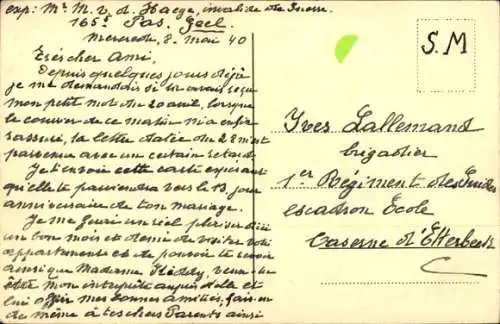 exp: Mr M. v. d. Haege, invalide de Guerre.
165, Pas, Geel
Mercredi, 8. mai 40
Très cher Ami.
Depuis quelques jours déjà
je me demandais si tu avais reçu
mon petit mot du 20 avril, lorsque
le courrier de ce matin m'a enfin
rassuré, ta lettre datée du 2 m'est
parvenue avec un certain retard.
Je t'envoie cette carte espérant
qu'elle te parviendra vers le 13, jour
anniversaire de ton mariage.
Je me ferai un réel plaisir d'ici
un bon mois et demi de visiter votre
appartement et de pouvoir te revoir
ainsi que Madame
être mon interprète auprès d'elle et
lui offrir mes bonnes amitiés, fais-en
de même à tes chers Parents ainsi
S.M
Yves Lallemand
brigadier
1er Régiment des Guides
escadron Ecole
Caserne d'Etterbeek